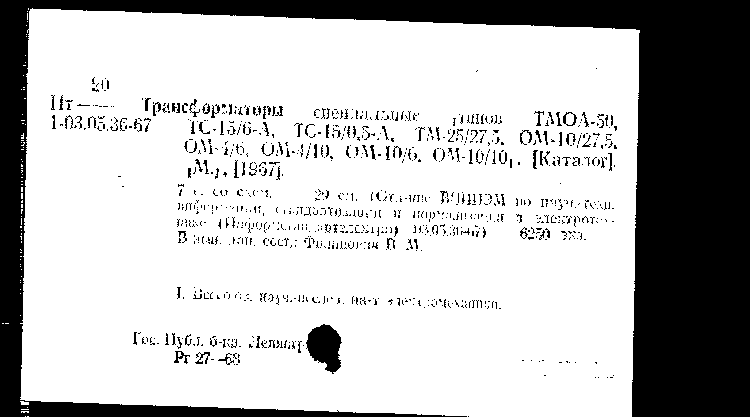 20
Пт —
Трансформаторы специальные типов ТМОА-50,
1-03.05.36-67 ТС-15/6-А, ТС-15/0,5-А, ТМ-25/27,5, ОМ-10/27,5,
ОМ-4/6, ОМ-4/10, ОМ-10/6, ОМ-10/10. [Каталог].
М., [1967].
7 с. со схем. 29 см. (Отд-ние ВНИИЭМ по науч.-техн.
информации, стандартизации и нормализации в электротех-
нике (Информстандартэлектро) 03.05.36-67) 6250 экз.
В нач. лит. сост.: Филиппова В. М.
I. Всесоюз. науч.-исслед. ин-т электромеханики.
Гос. Публ. б-ка. Ленингр
Рг 27—68